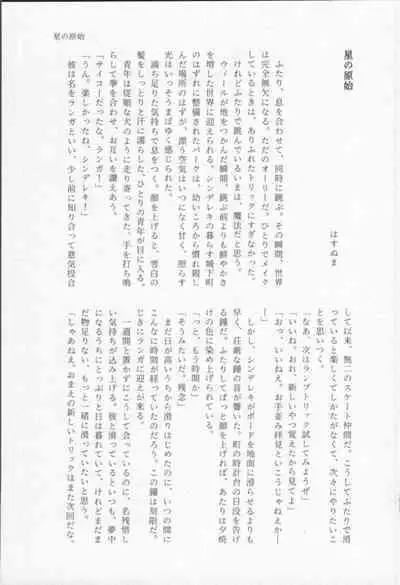 星の原始
星の原始
はすぬま
ふたり、息を合わせて、同時に跳ぶ。その瞬間、世界
は完全無欠になる。ただのオーリーだ。ひとりでメイク
しているときは、ありふれたトリックにすぎなかった。
けれどふたりで跳んでいるいまは、魔法だと思う。
ウィールが地をつかんだ瞬間、跳ぶ前よりも鮮やかさ
を増した世界に迎えられる。シンデレキの暮らす城下町
のはずれに整備されたパークは、幼いころから慣れ親し
んだ場所のはずが、漂う空気はいつになく甘く、照らす
光はいっそうまばゆく感じられた。
満ち足りた気持ちで息をつく。顔を上げると、雪白の
髪をしっとりと汗に濡らした、ひとりの青年が目に入る。
青年は従順な犬のように走り寄ってきた。手を打ち鳴
らして拳を合わせ、お互いを讃えあう。
「サイコーだったな、ランガ！」
「うん。楽しかったね、シンデレキ！」
彼は名をランガといい、少し前に知り合って意気投合
して以来、無二のスケート仲間だ。こうしてふたりで滑
っていると楽しくてしかたがなくて、次々にやりたいこ
とを思いつく。
「なあ、次はランプトリック試してみようぜ」
「いいね。おれ、新しいやつ覚えたから見てよ」
「おっ、いいねえ。お手並み拝見といこうじゃねえか―
―」
しかし、シンデレキがボードを地面に滑らせるより
早く、荘厳な鐘の音が響いた。町の時計台の日没を告げ
る鐘だ。ふたりしてぱっと顔を上げれば、あたりは夕焼
けの色に染め上げられている。
「っと、もう時間か」
「そうみたいだ。残念」
まだ日が高いうちから滑りはじめたのに、いつの間に
こんなに時間が経っていたのだろう。この鐘は刻限だ。
じきランガに迎えが来る。
一週間と置かずにこうして会っているのに、名残惜し
い気持ちが込み上げる。彼と滑っているといつも、夢中
になるうちにとっぷりと日は暮れていて、けれどまだま
だ物足りない、もっと一緒に滑っていたいと思う。
「しゃあねえ。おまえの新しいトリックはまた次回だな。